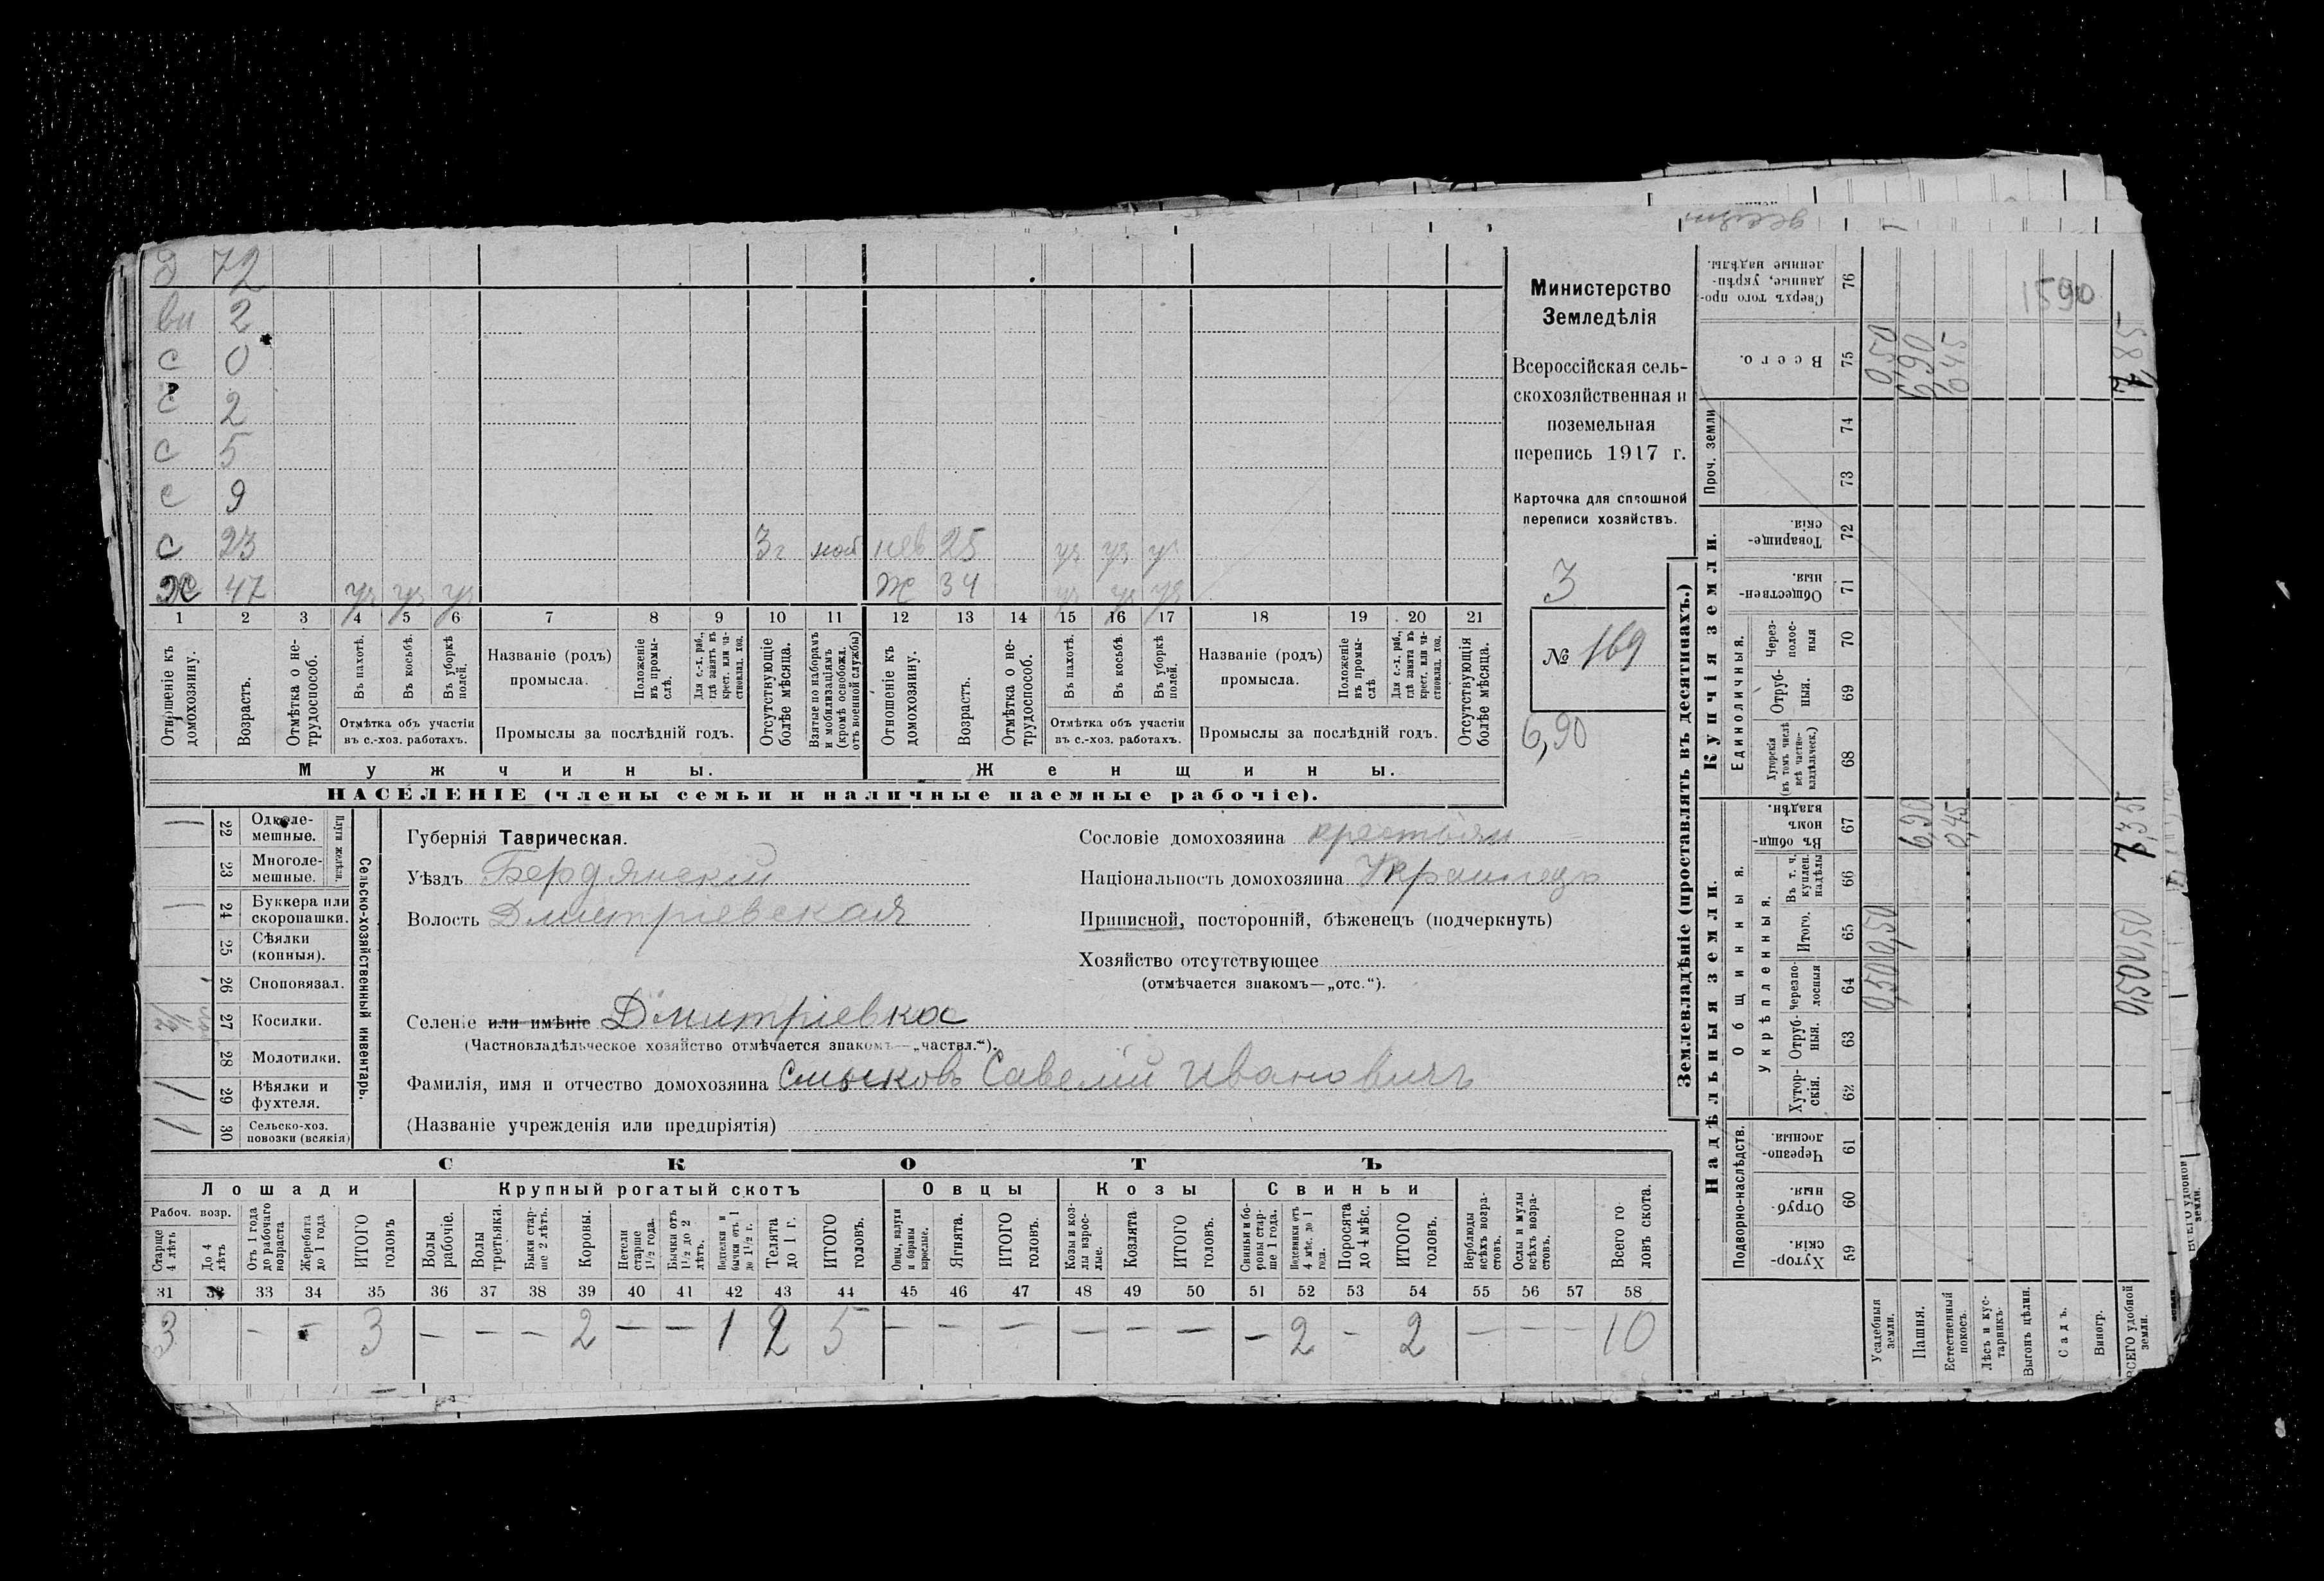 72
вн 2
с 0
с 2
с 5
с 9
с 23 3 г моб нев 25 уч уч уч
Ж 47 уч уч уч Ж 34 уч уч уч
1 2 3 4 5 6 7 8 9 10 11 12 13 14 15 16 17 18 19 20 21
Отношеніе къ домохозяину.
Возрастъ.
Отмѣтка о не-трудоспособ.
Въ пахотѣ.
Въ косьбѣ.
Въ уборкѣ полей.
Отмѣтка объ участіи въ с.-хоз. работахъ.
Названіе (родъ) промысла.
Положеніе въ промы-слѣ.
Для с.-х. раб., гдѣ занятъ въ крест. или ча-стновлад. хоз.
Промыслы за послѣдній годъ.
Отсутствующіе болѣе мѣсяца.
Взятые по наборамъ и мобилизаціямъ (кромѣ освобожд. отъ военной службы)
Отношеніе къ домохозяину.
Возрастъ.
Отмѣтка о не-трудоспособ.
Въ пахотѣ.
Въ косьбѣ.
Въ уборкѣ полей.
Отмѣтка объ участіи въ с.-хоз. работахъ.
Названіе (родъ) промысла.
Положеніе въ промы-слѣ
Для с.-х. раб., гдѣ занята въ крест. или ча-стновлад. хоз.
Промыслы за послѣдній годъ.
Отсутствующія болѣе мѣсяца.
Мужчины.
Женщины.
НАСЕЛЕНІЕ (члены семьи и наличные наемные рабочіе).
Министерство
Земледѣлія
Всероссійская сель-
скохозяйственная и
поземельная
перепись 1917 г.
Карточка для сплошной
переписи хозяйствъ.
3
№ 169
6,90
22 Одноле-мешные.
23 Многоле-мешные.
Плуги желѣзн.
24 Буккера или скоропашки.
25 Сѣялки (конныя).
26 Сноповязал.
27 Косилки. 1/2
28 Молотилки.
29 Вѣялки и фухтеля. 1
30 Сельско-хоз. повозки (всякія) 1
Сельско-хозяйственный инвентарь.
Губернія Таврическая.
Уѣздъ Бердянскій
Волость Дмитріевская
Сословіе домохозяина крестьян
Національность домохозяина Украинецъ
Приписной, посторонній, бѣженецъ (подчеркнуть)
Хозяйство отсутствующее
(отмѣчается знакомъ—„отс.“).
Селеніе или имѣніе Дмитріевка
(Частновладѣльческое хозяйство отмѣчается знакомъ—„частвл.“).
Фамилія, имя и отчество домохозяина Смыковъ Савелій Ивановичъ
(Названіе учрежденія или предпріятія)
СКОТЪ
Лошади Крупный рогатый скотъ Овцы Козы Свиньи
Рабоч. возр.
Старше 4 лѣтъ
До 4 лѣтъ
Отъ 1 года до рабочаго возраста
Жеребята до 1 года
ИТОГО головъ
Волы рабочіе.
Волы третьяки.
Быки стар-ше 2 лѣтъ.
Коровы.
Нетели старше 1 1/2 года.
Бычки отъ 1 1/2 до 2 лѣтъ.
Подтелки и бычки отъ 1 до 1 1/2 г.
Телята до 1 г.
ИТОГО головъ.
Овцы, валухи и бараны взрослые.
Ягнята.
ИТОГО головъ.
Козы и коз-лы взрос-лые.
Козлята
ИТОГО головъ.
Свиньи и бо-ровы стар-ше 1 года.
Подсвинки отъ 4 мѣс. до 1 года.
Поросята до 4 мѣс.
ИТОГО головъ.
Верблюды всѣхъ возра-стовъ.
Ослы и мулы всѣхъ возра-стовъ.
Всего го-ловъ скота.
31 32 33 34 35 36 37 38 39 40 41 42 43 44 45 46 47 48 49 50 51 52 53 54 55 56 57 58
3 – – 3 – – – 2 – – 1 2 5 – – – – – – – 2 – 2 – – – 10
Землевладѣніе (проставлять въ десятинахъ.)
Надѣльныя земли. Купчія земли. Проч. земли
Подворно-наслѣдств.
Общинныя.
Укрѣпленныя.
Единоличныя.
Хутор-скія. 59
Отруб-ныя. 60
Черезпо-лосныя 61
Хутор-скія. 62
Отруб-ныя. 63
Черезпо-лосныя 64
Итого. 65
Въ т. ч. куплен. надѣлы 66
Въ общи-номъ владѣн. 67
Хуторскія (въ томъ числѣ всѣ частно-владѣльческ.) 68
Отруб-ныя. 69
Через-полос-ныя 70
Обществен-ныя 71
Товарище-скія. 72
73
74
Всего. 75
Сверхъ того про-данные, укрѣп-ленные надѣлы. 76
Усадебныя земли. 0,50 0,50 0,50
Пашня. 6,90 6,90
Естественный покосъ. 0,45 0,45
Лѣсъ и кус-тарникъ.
Выгонъ цѣлин.
Садъ.
Виногр.
ВСЕГО удобной земли. 0,50 0,50 7,35 7,85
1590